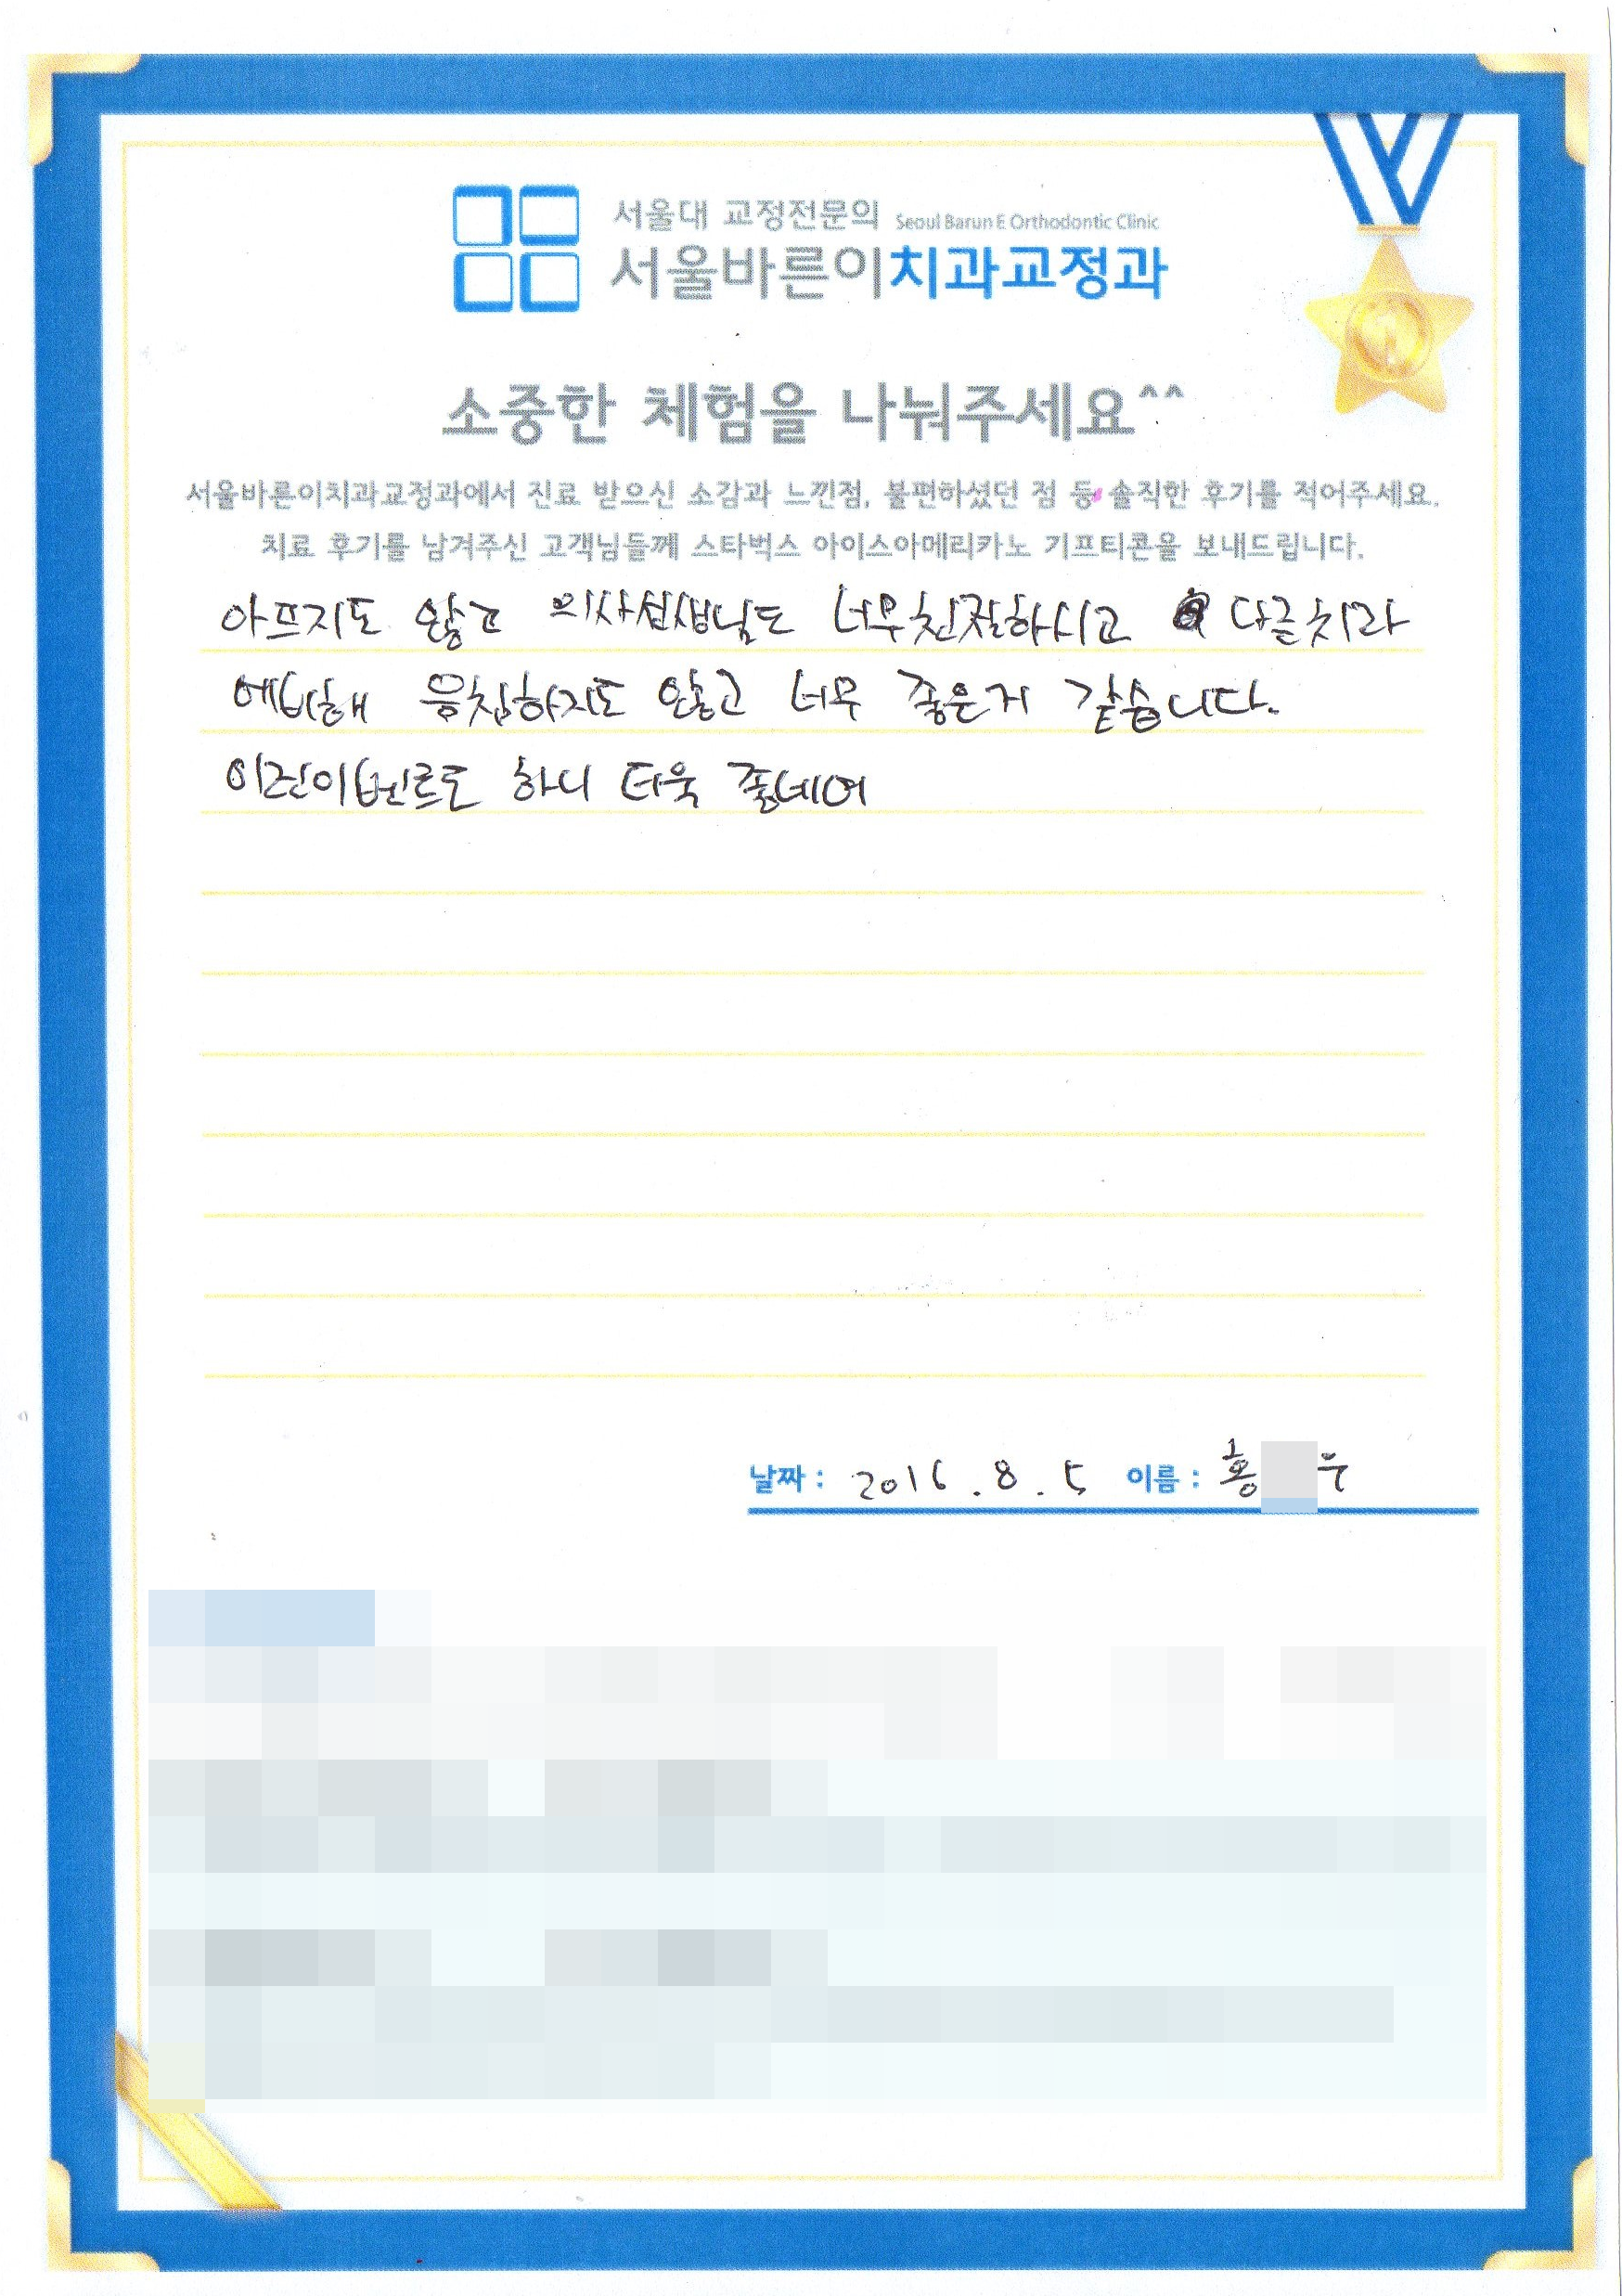 서울대 교정전문의 Seoul Barun E Orthodontic Clinic
서울바른이치과교정과
소중한 체험을 나눠주세요^^
서울바른이치과교정과에서 진료 받으신 소감과 느낀점, 불편하셨던 점 등 솔직한 후기를 적어주세요.
치료 후기를 남겨주신 고객님들께 스타벅스 아이스아메리카노 기프티콘을 보내드립니다.
아프지도 않고 의사선생님도 너무친절하시고 다른치과
에비해 음침하지도 않고 너무 좋은거 같습니다.
이런이벤트도 하니 더욱 좋네여
날짜 : 2016.8.5 이름 : 홍 우